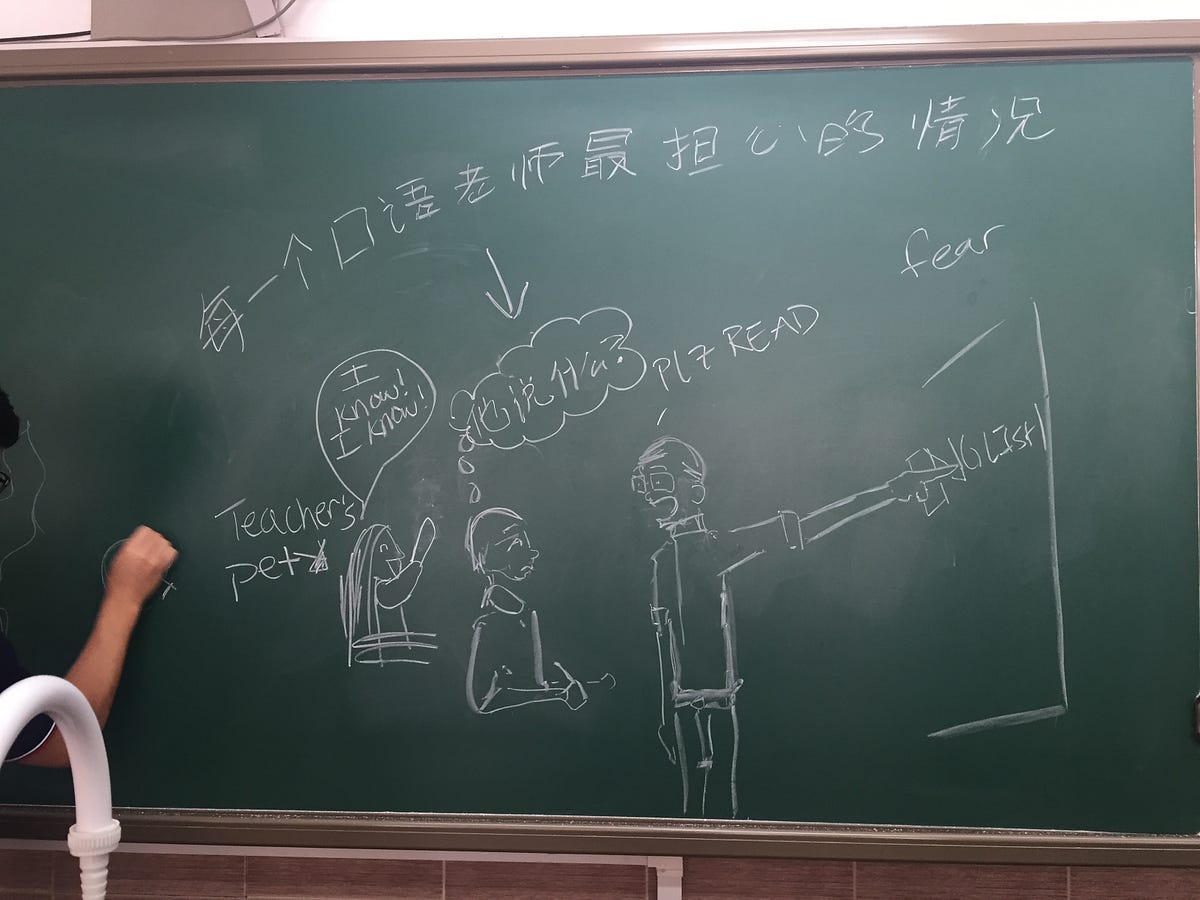 每一个口语老师最担心的情况
fear
I
know!
I know!
他说什么?
Plz READ
Teacher's
pet